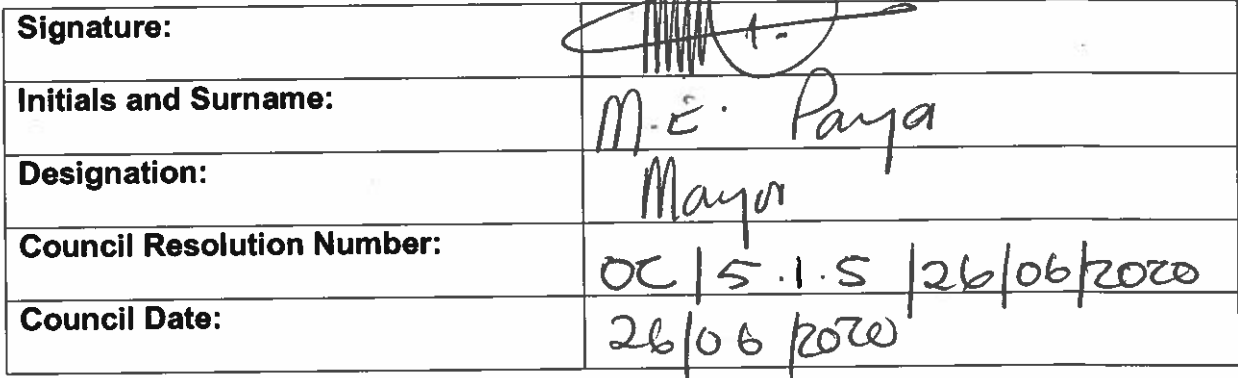 Signature:
Initials and Surname: M.E. Paya
Designation: Mayor
Council Resolution Number: OC/5.1.5/26/06/2020
Council Date: 26/06/2020